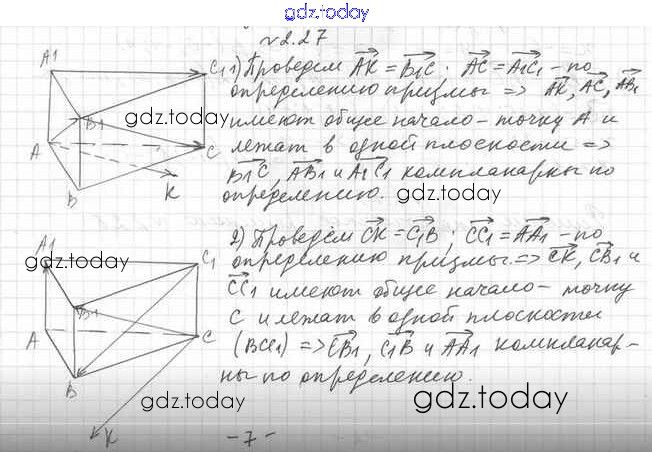 gdz.today
№2.27
1) Проведем AK = B1C. AC = A1C1 - по
определению призмы => AK, AC, AB1
имеют общее начало - точку A и
лежат в одной плоскости =>
B1C, AB1 и A1C1 компланарны по
определению.
A1
C1
B1
A
C
B
K
gdz.today
gdz.today
2) Проведём CK = C1B; CC1 = AA1 - по
определению призмы. => CK, CB1 и
CC1 имеют общее начало - точку
C и лежат в одной плоскости
(BCC1) => CB1, C1B и AA1 компланар-
ны по определению.
A1
C1
B1
A
C
B
K
gdz.today
gdz.today
gdz.today
- 7 -